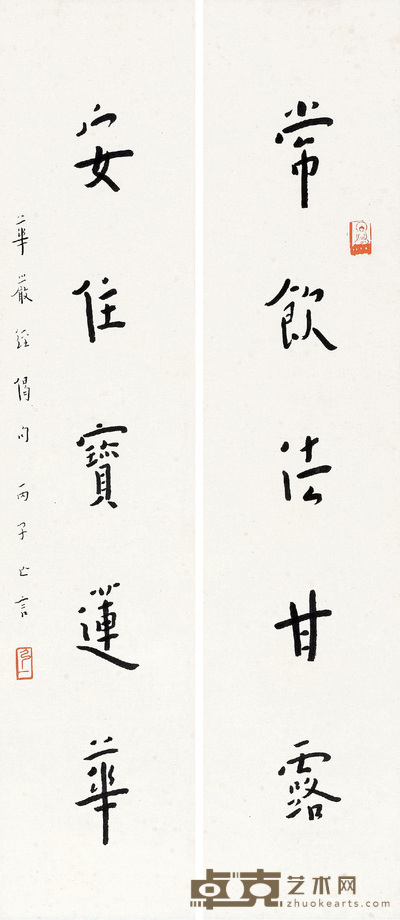 常飲法甘露
安住寶蓮華
華嚴經偈句 丙子亡言
卓克艺术网
zhuokearts.com